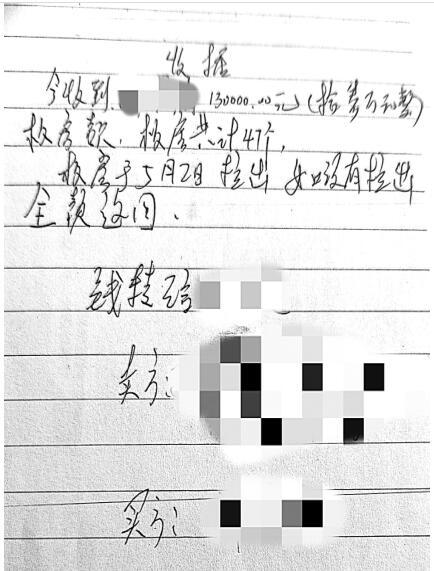 收据
今收到 130000.00元(拾叁万元整)
板房款、板房共计47个,
板房于5月2日拉出 如没有拉出
全款返回、
钱转给
卖方:
买方: